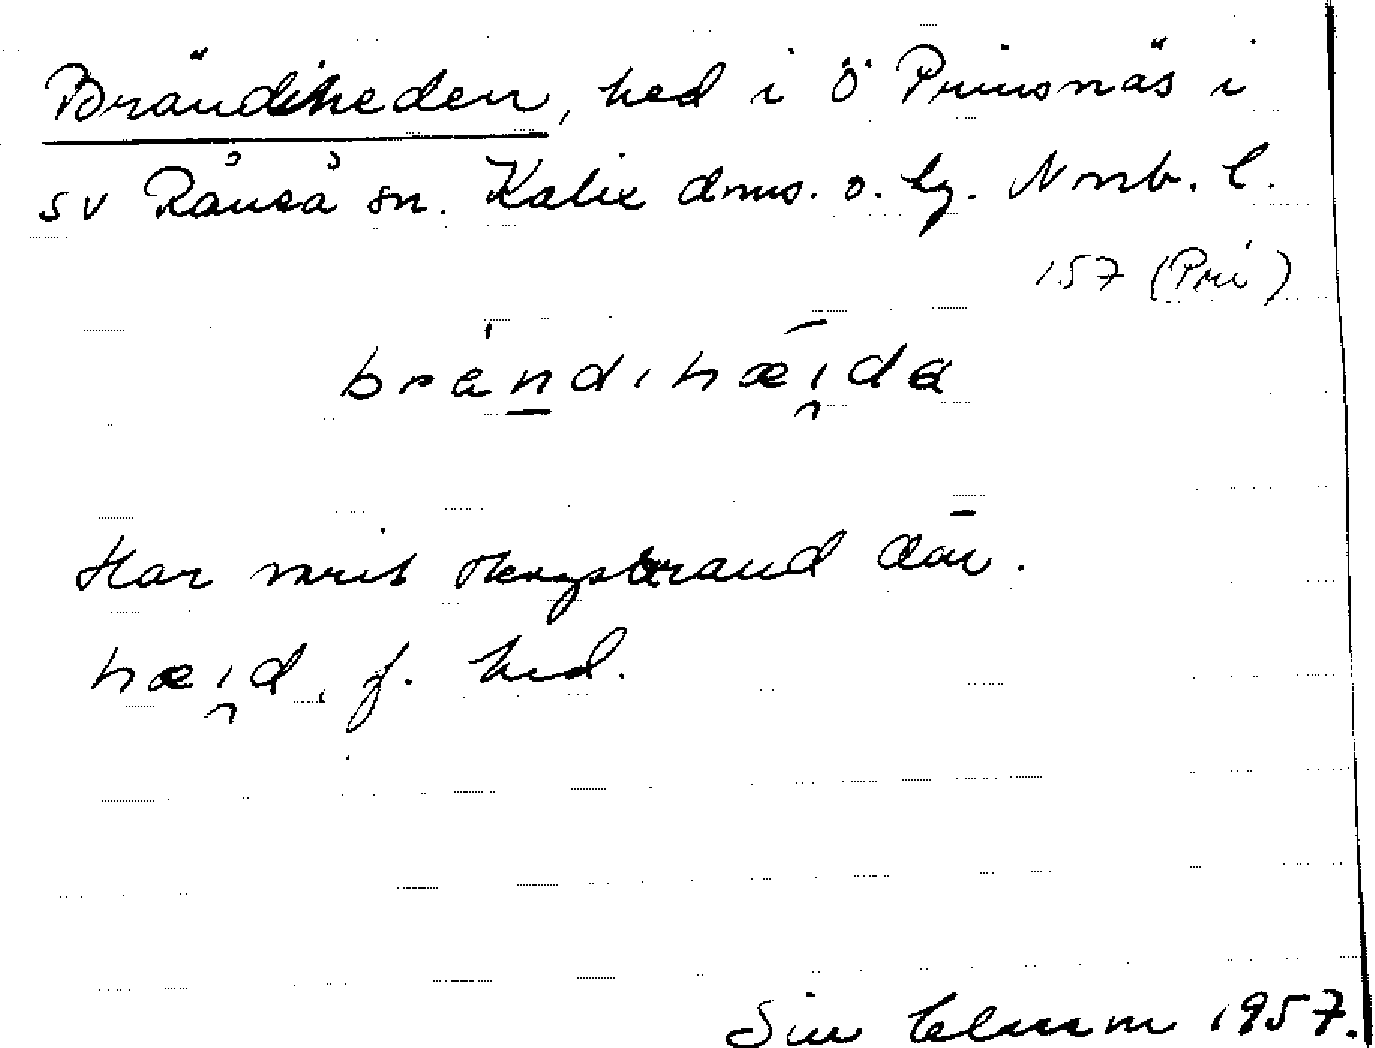 Brändiheden, hed i Ö Prinsnäs i
sv Råneå sn. Kalix doms. o. lg. Norrb. l.
157 (Pri)
brändihæi̯da
Har varit skogsbrand där.
hæi̯d, f. hed.
1957.